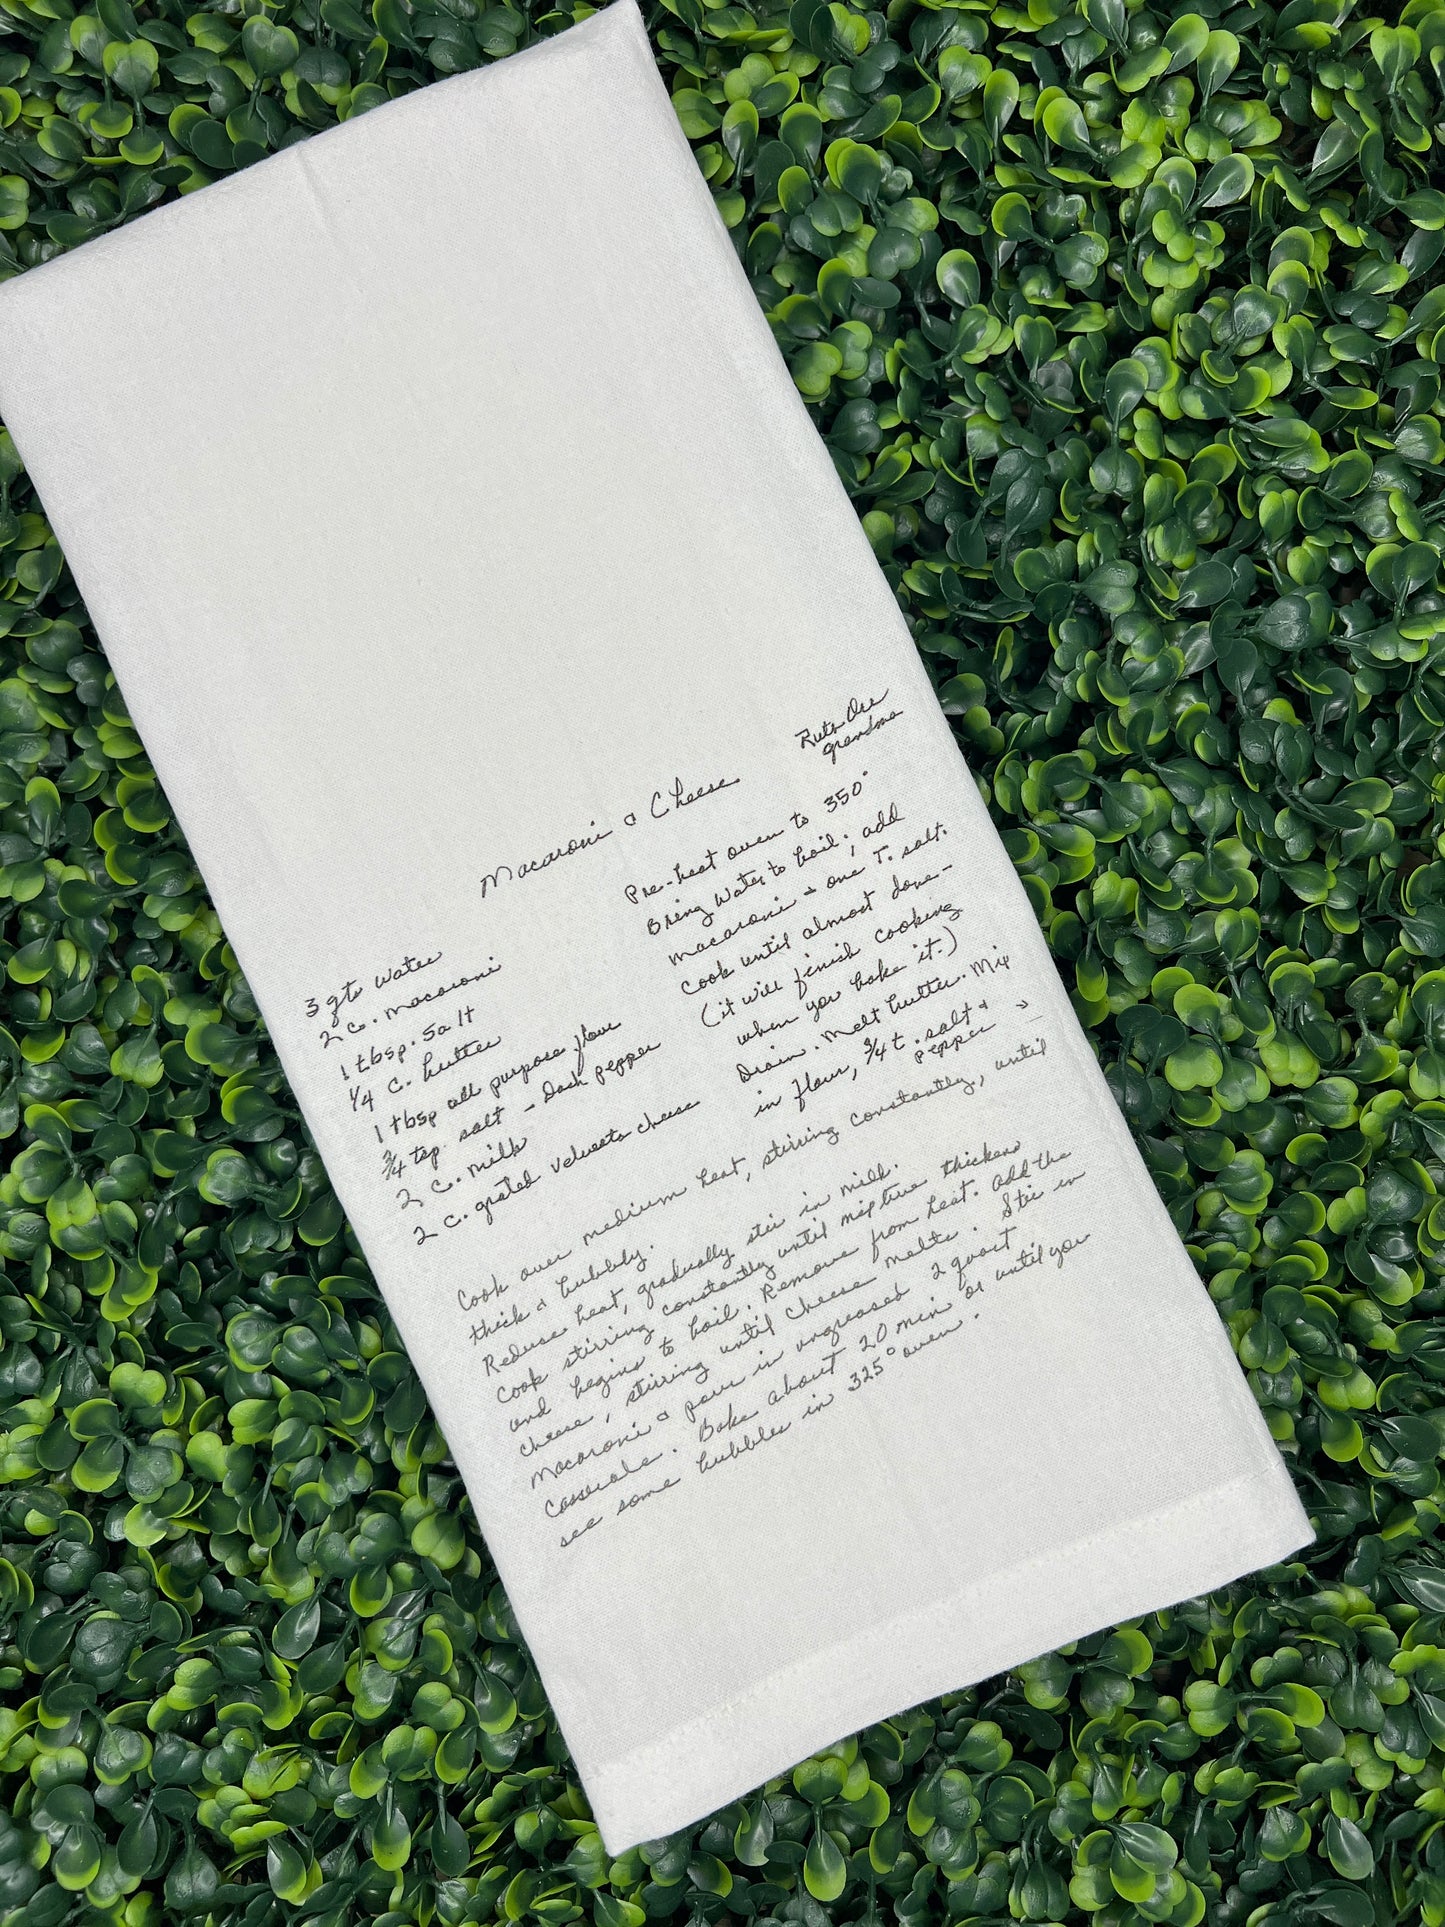 Macaroni & Cheese
Ruth Dee
grandma
3 qts water
2 c. macaroni
1 tbsp. salt
1/4 c. butter
1 tbsp all purpose flour
3/4 tsp salt - Dash pepper
2 c. milk
2 c. grated velveeta cheese
Pre-heat oven to 350°
Bring water to boil; add
macaroni & one T. salt.
Cook until almost done -
(it will finish cooking
when you bake it.)
Drain. Melt butter. Mix
in flour, 3/4 t. salt &
pepper →
Cook over medium heat, stirring constantly, until
thick & bubbly.
Reduce heat, gradually stir in milk.
Cook stirring constantly until mixture thickens
and begins to boil. Remove from heat. Add the
cheese, stirring until cheese melts. Stir in
macaroni & pour in ungreased 2 quart
casserole. Bake about 20 min or until you
see some bubbles in 325° oven.